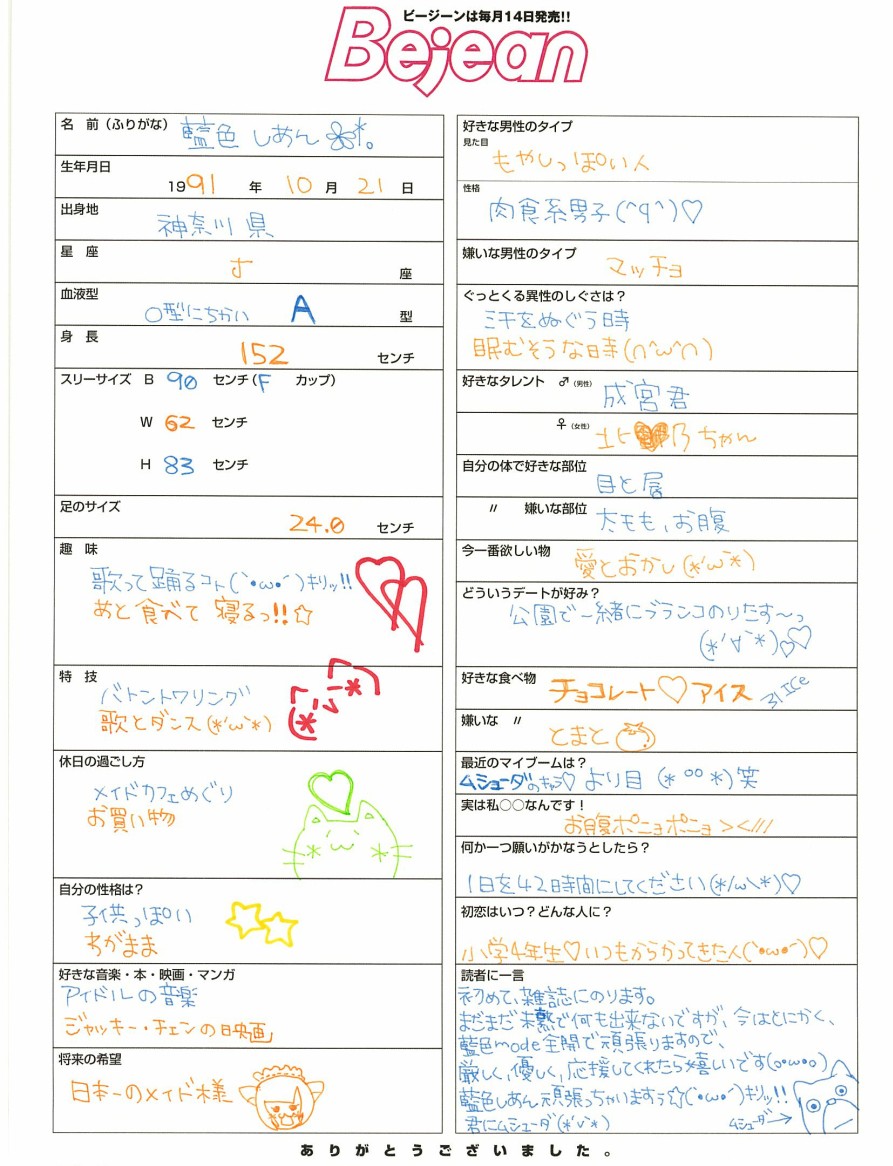 ビージーンは毎月14日発売!!
Bejean
名　前（ふりがな） 藍色 しあん
生年月日
1991 年 10 月 21 日
出身地
神奈川県
星　座
座
血液型
O型にちかい A 型
身　長
152 センチ
スリーサイズ B 90 センチ(F カップ)
W 62 センチ
H 83 センチ
足のサイズ
24.0 センチ
趣　味
歌って踊るコト(`・ω・´)キリッ!!
あと食べて寝るっ!!☆
特　技
バトントワリング
歌とダンス(*'ω'*)
休日の過ごし方
メイドカフェめぐり
お買い物
自分の性格は？
子供っぽい
わがまま
好きな音楽・本・映画・マンガ
アイドルの音楽
ジャッキー・チェンの映画
将来の希望
日本一のメイド様
好きな男性のタイプ
見た目
もやしっぽい人
性格
肉食系男子(^q^)♡
嫌いな男性のタイプ
マッチョ
ぐっとくる異性のしぐさは？
汗をぬぐう時
眠むそうな時(∩'ω'∩)
好きなタレント ♂（男性） 成宮君
♀（女性） 北乃ちゃん
自分の体で好きな部位
目と唇
〃　嫌いな部位 太モモ、お腹
今一番欲しい物
愛とおかし(*'ω'*)
どういうデートが好み？
公園で一緒にブランコのりたす〜っ
(*'∀'*)♡♡
好きな食べ物 チョコレート♡アイス 31ICe
嫌いな　〃
とまと
最近のマイブームは？
ムシューダのキャラ♡ より目 (*°°*)笑
実は私○○なんです！
お腹ポニョポニョ＞＜///
何か一つ願いがかなうとしたら？
1日を42時間にしてください(*/ω\*)♡
初恋はいつ？どんな人に？
小学4年生♡いつもからかってきた人(`・ω・´)♡
読者に一言
初めて、雑誌にのります。
まだまだ未熟で何も出来ないですが、今はとにかく、
藍色mode全開で頑張りますので、
厳しく、優しく、応援してくれたら嬉しいです(o・ω・o)
藍色しあん頑張っちゃいますぅ☆(`・ω・´)キリッ!!
君にムシューダ(*'∨'*) ムシューダ→
ありがとうございました。